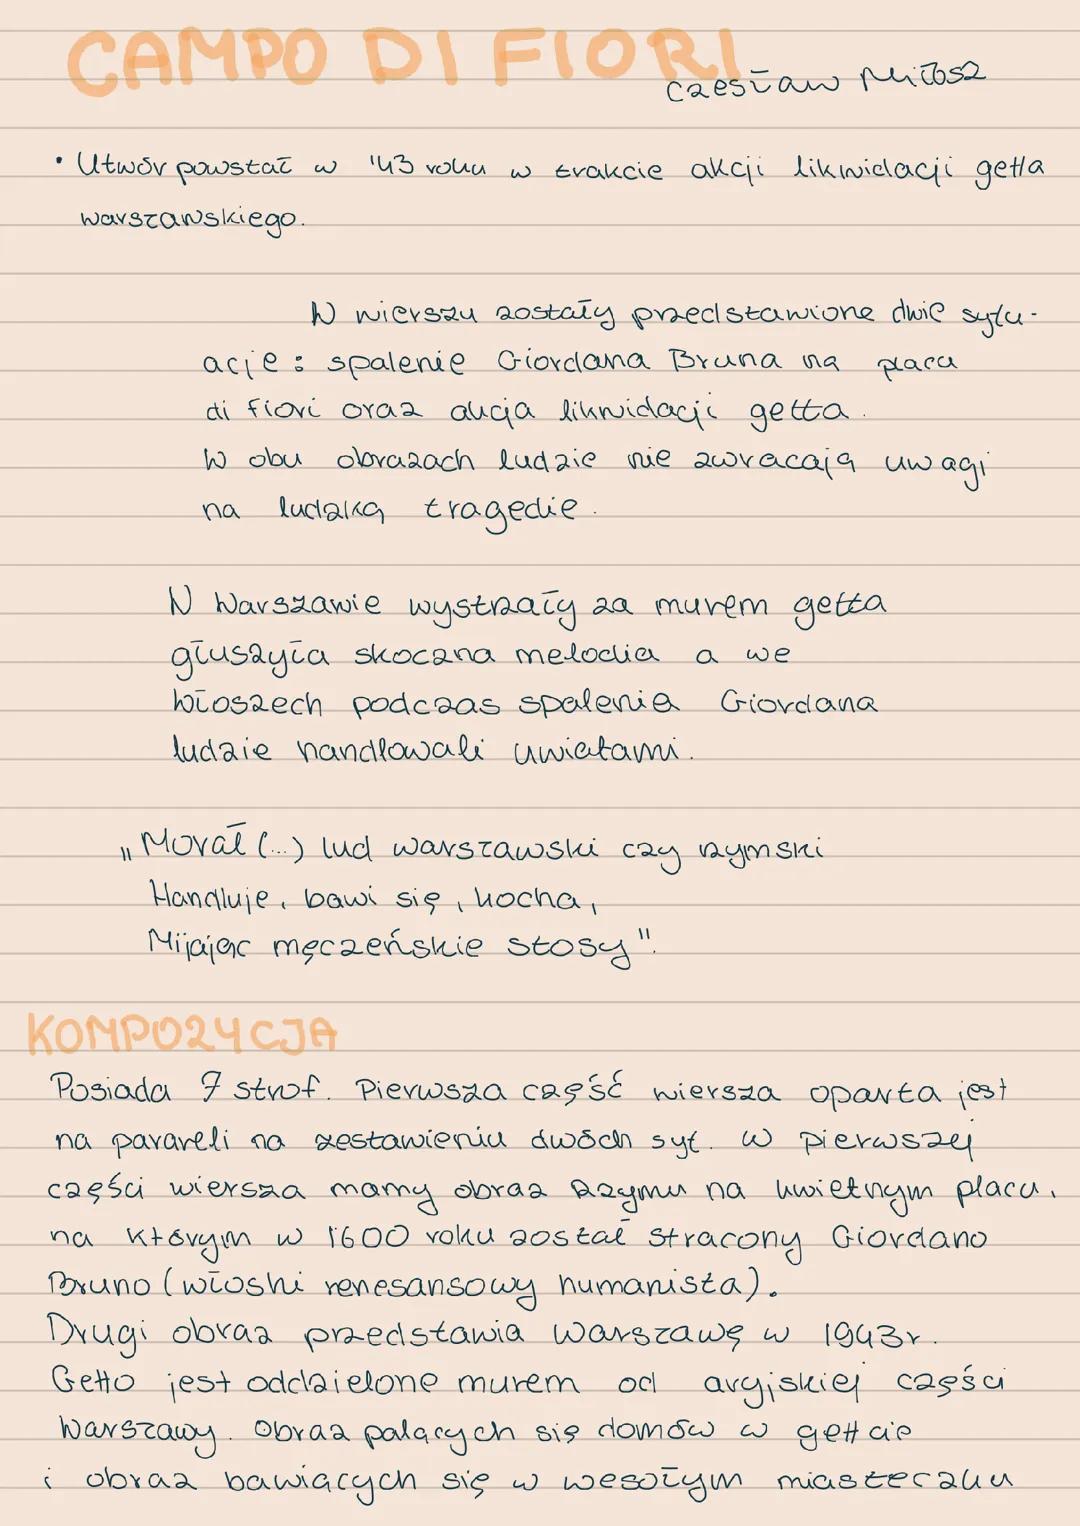 CAMPO DI FIORI
Czesław Miłosz
• Utwór powstał w '43 roku w trakcie akcji likwidacji getta
warszawskiego.
W wierszu zostały przedstawione dwie sytu-
acje: spalenie Giordana Bruna na placu
di Fiori oraz akcja likwidacji getta.
W obu obrazach ludzie nie zwracają uwagi
na ludzką tragedie.
W Warszawie wystrzały za murem getta
głuszyła skoczna melodia a we
Włoszech podczas spalenia Giordana
ludzie handlowali kwiatami.
„Morał (...) lud warszawski czy rzymski
Handluje, bawi się, kocha,
Mijając męczeńskie stosy".
KOMPOZYCJA
Posiada 7 strof. Pierwsza część wiersza oparta jest
na parareli na zestawieniu dwóch syt. W pierwszej
części wiersza mamy obraz Rzymu na kwietnym placu,
na którym w 1600 roku został stracony Giordano
Bruno (włoski renesansowy humanista).
Drugi obraz przedstawia Warszawę w 1943r.
Getto jest oddzielone murem od aryjskiej części
Warszawy. Obraz palących się domów w gettcie
i obraz bawiących się w wesołym miasteczku